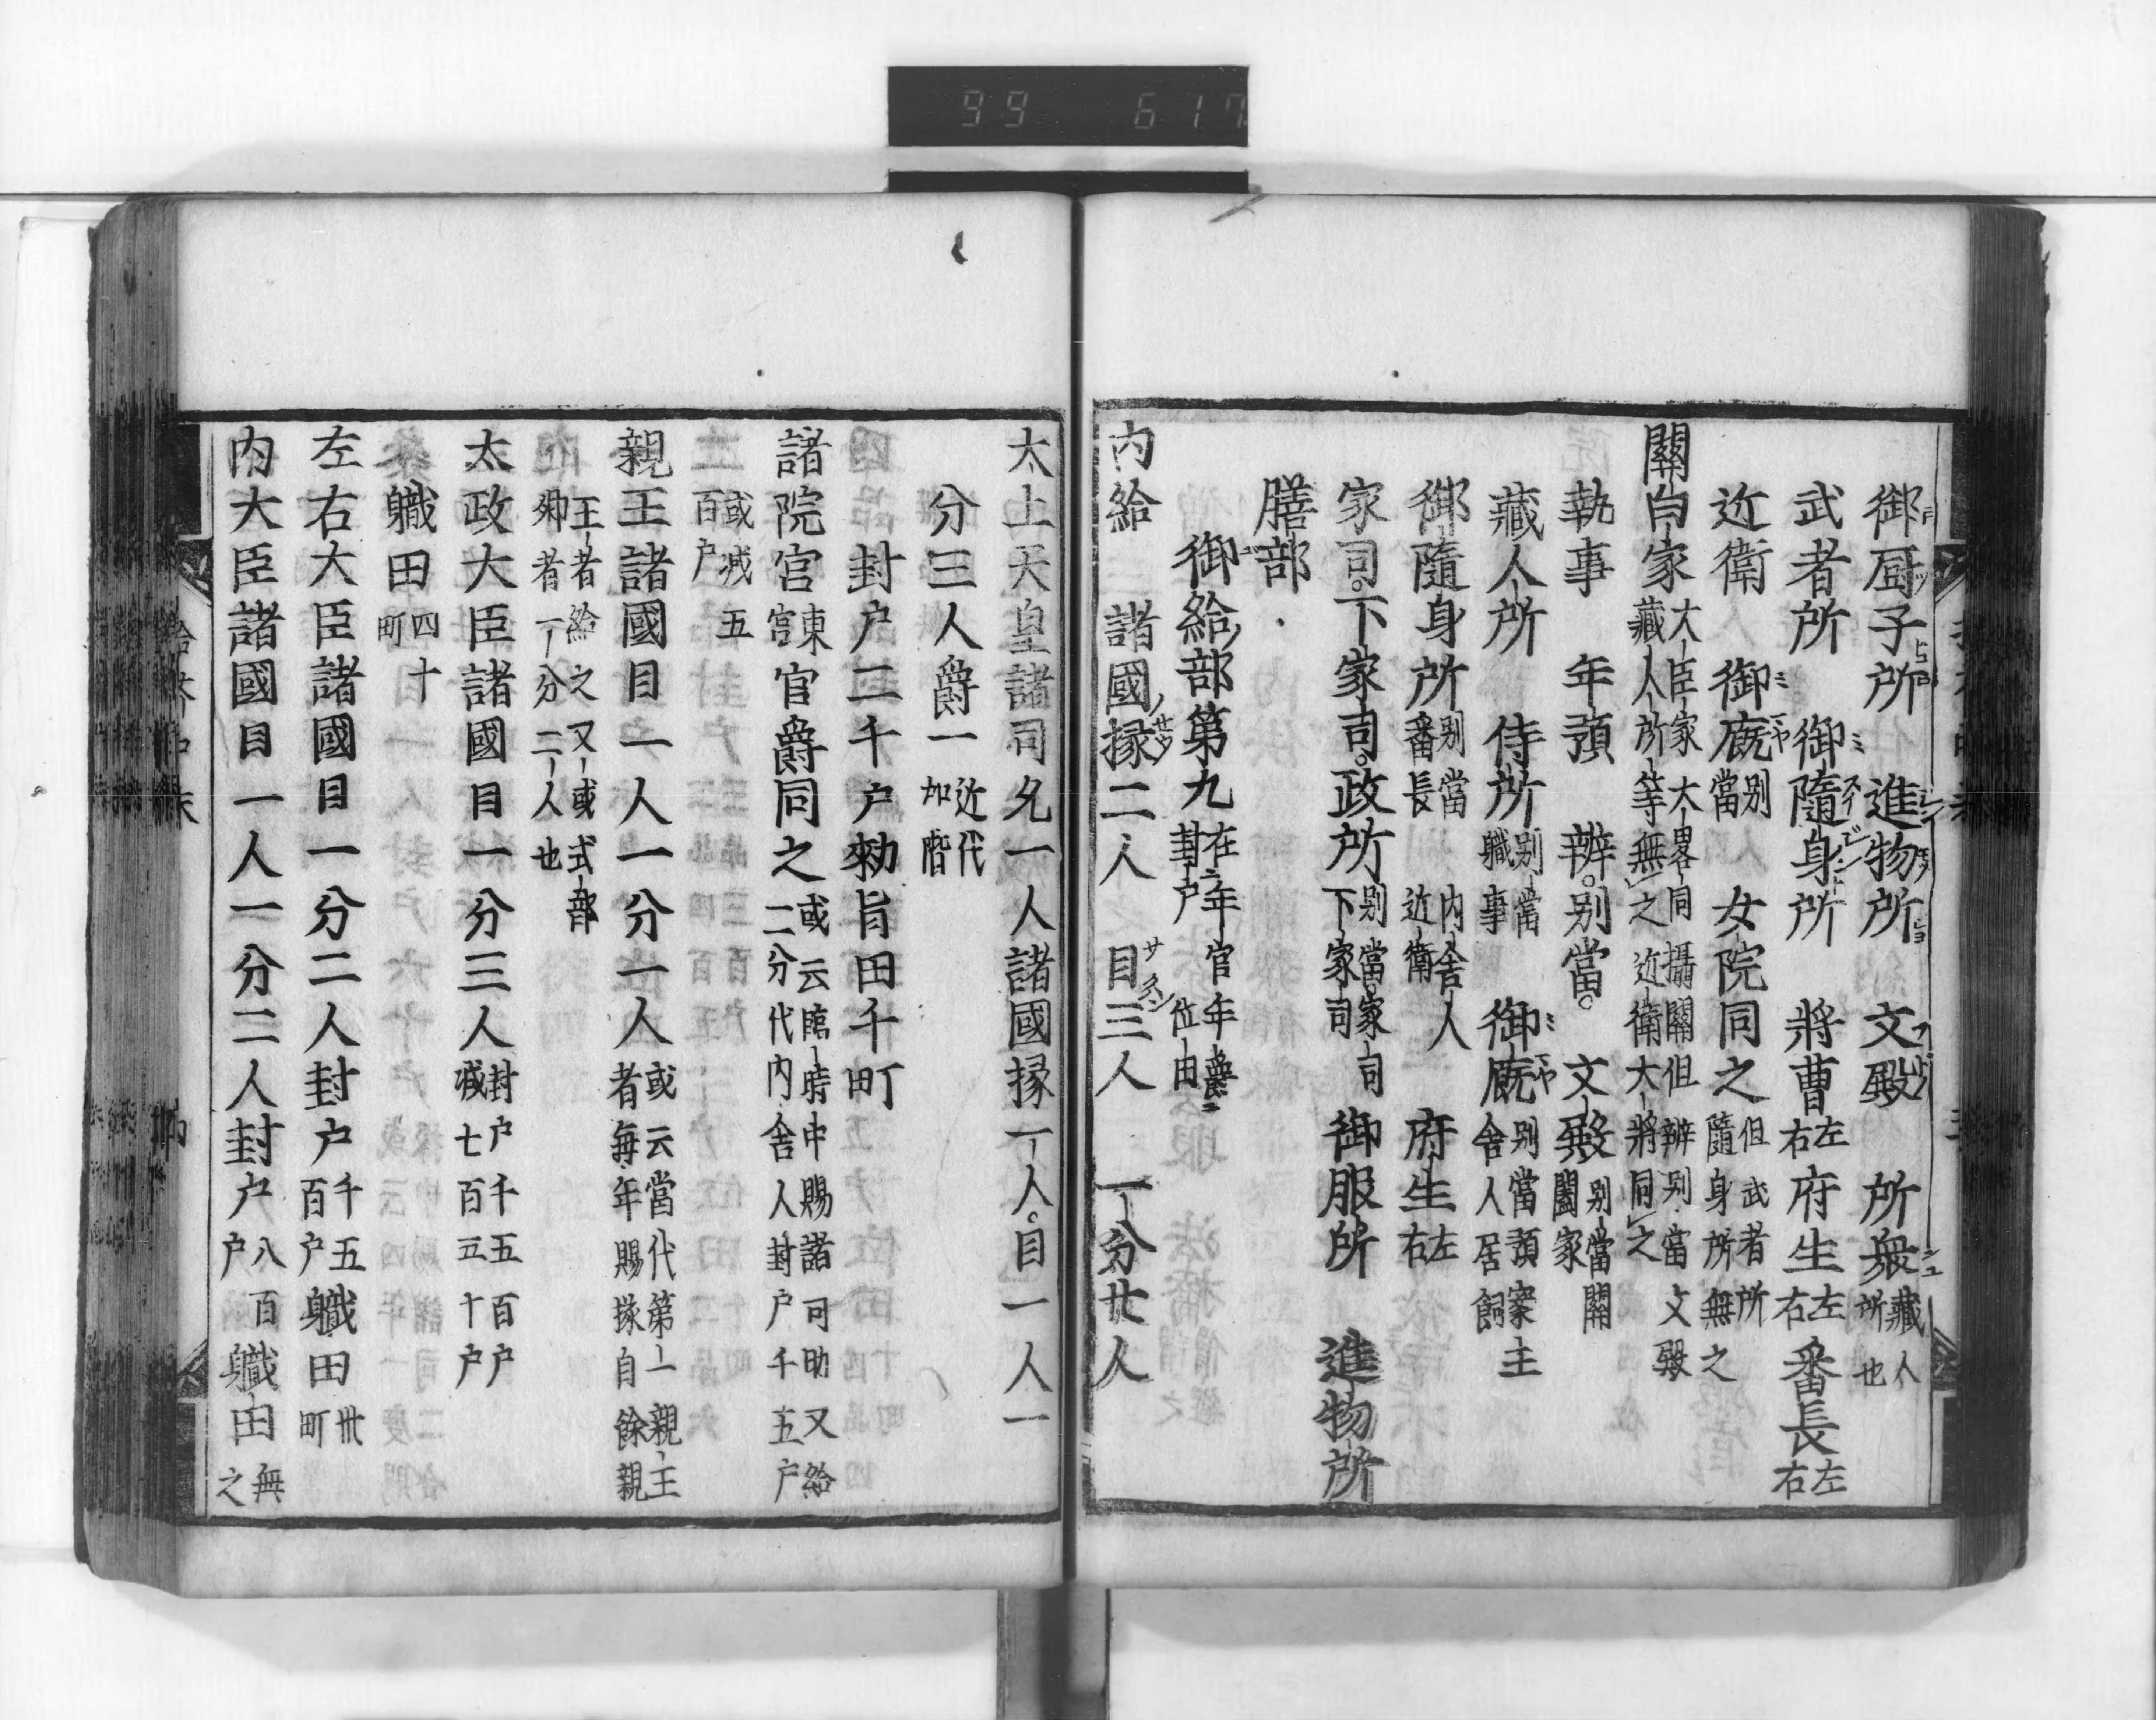 御厨子所 進物所 文殿 所衆藏人所也
武者所 御隨身所 將曹左右府生左右番長左右
近衛 御廐別當 女院同之但武者所隨身所無之
關白家大臣家大畧同攝關但辨別當文殿藏人所等無之近衛大將同之
執事 年預 辨別當 文殿別當關闔家
藏人所 侍所別當職事 御廐別當預家主舍人居飼
御隨身所別當番長 內舍人近衛 府生左右
家司下家司政所別當家司下家司 御服所 進物所
膳部
御給部第九在年官年爵封戶位田
內給 諸國掾二人 目三人 一分廿人
太上天皇諸司允一人諸國掾一人目一人一
分三人爵一近代加階
封戶二千戶勅旨田千町
諸院宮東宮官爵同之或云臨時中賜諸司助又給二分代內舍人封戶千五戶
或減五百戶
親王諸國目一人一分一人或云當代第一親王者每年賜掾自餘親
王者給之又或式部卿者一分二人也
太政大臣諸國目一分三人封戶千五百戶減七百五十戶
職田四十町
左右大臣諸國目一分二人封戶千五百戶職田卅町
內大臣諸國目一人一分二人封戶八百戶職田無之
99 617